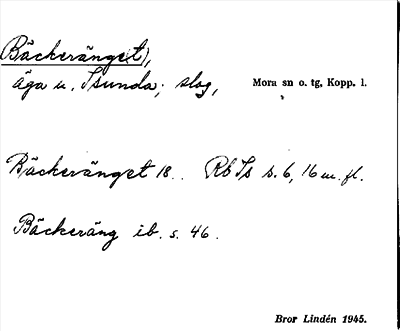 Bäckeränge(t),
äga u. Isunda; slog, Mora sn o. tg, Kopp. l.
Bäckeränget 18.. Rb Is s. 6, 16 m. fl.
Bäckeräng ib. s. 46.
Bror Lindén 1945.